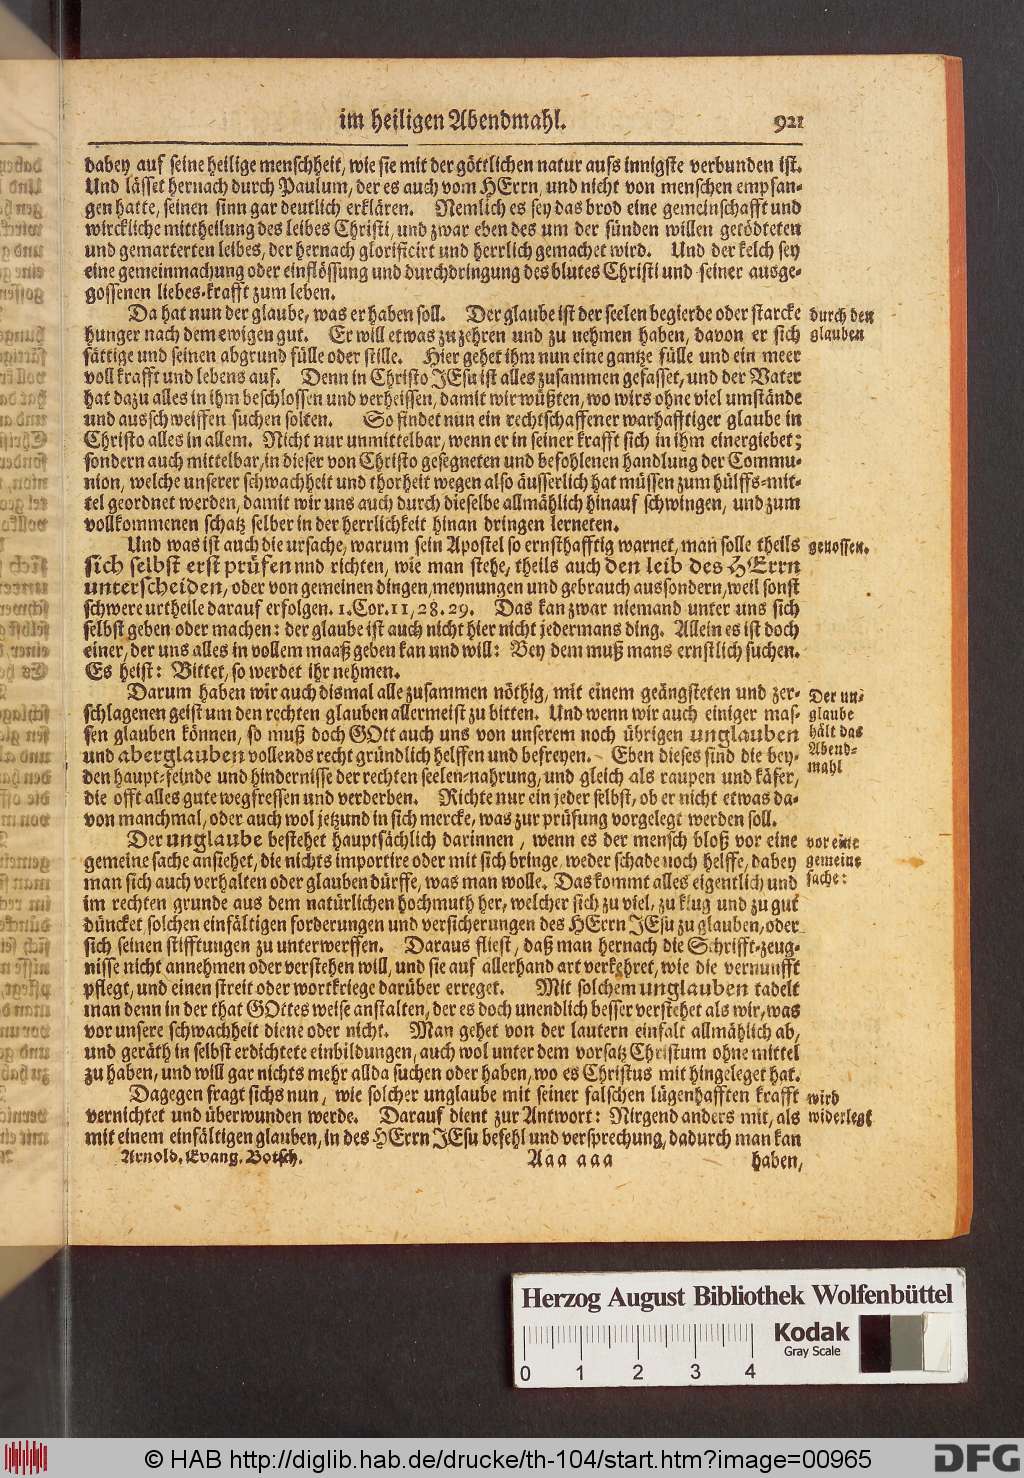 im heiligen Abendmahl. 921
dabey auf seine heilige menschheit, wie sie mit der göttlichen natur aufs innigste verbunden ist.
Und lässet hernach durch Paulum, der es auch vom HErrn, und nicht von menschen empfan-
gen hatte, seinen sinn gar deutlich erklären. Nemlich es sey das brod eine gemeinschafft und
wirckliche mittheilung des leibes Christi, und zwar eben des um der sünden willen getödteten
und gemarterten leibes, der hernach glorificirt und herrlich gemachet wird. Und der kelch sey
eine gemeinmachung oder einflössung und durchdringung des blutes Christi und seiner ausge-
gossenen liebes-krafft zum leben.
Da hat nun der glaube, was er haben soll. Der glaube ist der seelen begierde oder starcke
hunger nach dem ewigen gut. Er will etwas zu zehren und zu nehmen haben, davon er sich
sättige und seinen abgrund fülle oder stille. Hier gehet ihm nun eine gantze fülle und ein meer
voll krafft und lebens auf. Denn in Christo JEsu ist alles zusammen gefasset, und der Vater
hat dazu alles in ihm beschlossen und verheissen, damit wir wüßten, wo wirs ohne viel umstände
und ausschweiffen suchen solten. So findet nun ein rechtschaffener warhafftiger glaube in
Christo alles in allem. Nicht nur unmittelbar, wenn er in seiner krafft sich in ihm einergiebet;
sondern auch mittelbar, in dieser von Christo gesegneten und befohlenen handlung der Commu-
nion, welche unserer schwachheit und thorheit wegen also äusserlich hat müssen zum hülffs-mit-
tel geordnet werden, damit wir uns auch durch dieselbe allmählich hinauf schwingen, und zum
vollkommenen schatz selber in der herrlichkeit hinan dringen lerneten.
durch den
glauben
Und was ist auch die ursache, warum sein Apostel so ernsthafftig warnet, man solle theils
sich selbst erst prüfen und richten, wie man stehe, theils auch den leib des HErrn
unterscheiden, oder von gemeinen dingen, meynungen und gebrauch aussondern, weil sonst
schwere urtheile darauf erfolgen. 1. Cor. 11, 28. 29. Das kan zwar niemand unter uns sich
selbst geben oder machen: der glaube ist auch nicht hier nicht jedermans ding. Allein es ist doch
einer, der uns alles in vollem maaß geben kan und will: Bey dem muß mans ernstlich suchen.
Es heist: Bittet, so werdet ihr nehmen.
genossen.
Darum haben wir auch dismal alle zusammen nöthig, mit einem geängsteten und zer-
schlagenen geist um den rechten glauben allermeist zu bitten. Und wenn wir auch einiger mas-
sen glauben können, so muß doch GOtt auch uns von unserem noch übrigen unglauben
und aberglauben vollends recht gründlich helffen und befreyen. Eben dieses sind die bey-
den haupt-feinde und hindernisse der rechten seelen-nahrung, und gleich als raupen und käfer,
die offt alles gute wegfressen und verderben. Richte nur ein jeder selbst, ob er nicht etwas da-
von manchmal, oder auch wol jetzund in sich mercke, was zur prüfung vorgelegt werden soll.
Der un-
glaube
hält das
Abend-
mahl
Der unglaube bestehet hauptsächlich darinnen, wenn es der mensch bloß vor eine
gemeine sache ansiehet, die nichts importire oder mit sich bringe, weder schade noch helffe, dabey
man sich auch verhalten oder glauben dürffe, was man wolle. Das kommt alles eigentlich und
im rechten grunde aus dem natürlichen hochmuth her, welcher sich zu viel, zu klug und zu gut
düncket solchen einfältigen forderungen und versicherungen des HErrn JEsu zu glauben, oder
sich seinen stifftungen zu unterwerffen. Daraus fliest, daß man hernach die Schrifft-zeug-
nisse nicht annehmen oder verstehen will, und sie auf allerhand art verkehret, wie die vernunfft
pflegt, und einen streit oder wortkriege darüber erreget. Mit solchem unglauben tadelt
man denn in der that GOttes weise anstalten, der es doch unendlich besser verstehet als wir, was
vor unsere schwachheit diene oder nicht. Man gehet von der lautern einfalt allmählich ab,
und geräth in selbst erdichtete einbildungen, auch wol unter dem vorsatz Christum ohne mittel
zu haben, und will gar nichts mehr allda suchen oder haben, wo es Christus mit hingeleget hat.
vor eine
gemeine
sache:
Dagegen fragt sichs nun, wie solcher unglaube mit seiner falschen lügenhafften krafft
vernichtet und überwunden werde. Darauf dient zur Antwort: Nirgend anders mit, als
mit einem einfältigen glauben, in des HErrn JEsu befehl und versprechung, dadurch man kan
wird
widerlegt
Arnold. Evang. Botsch. Aaa aaa haben,
Herzog August Bibliothek Wolfenbüttel
Kodak
Gray Scale
0 1 2 3 4
© HAB http://diglib.hab.de/drucke/th-104/start.htm?image=00965
DFG